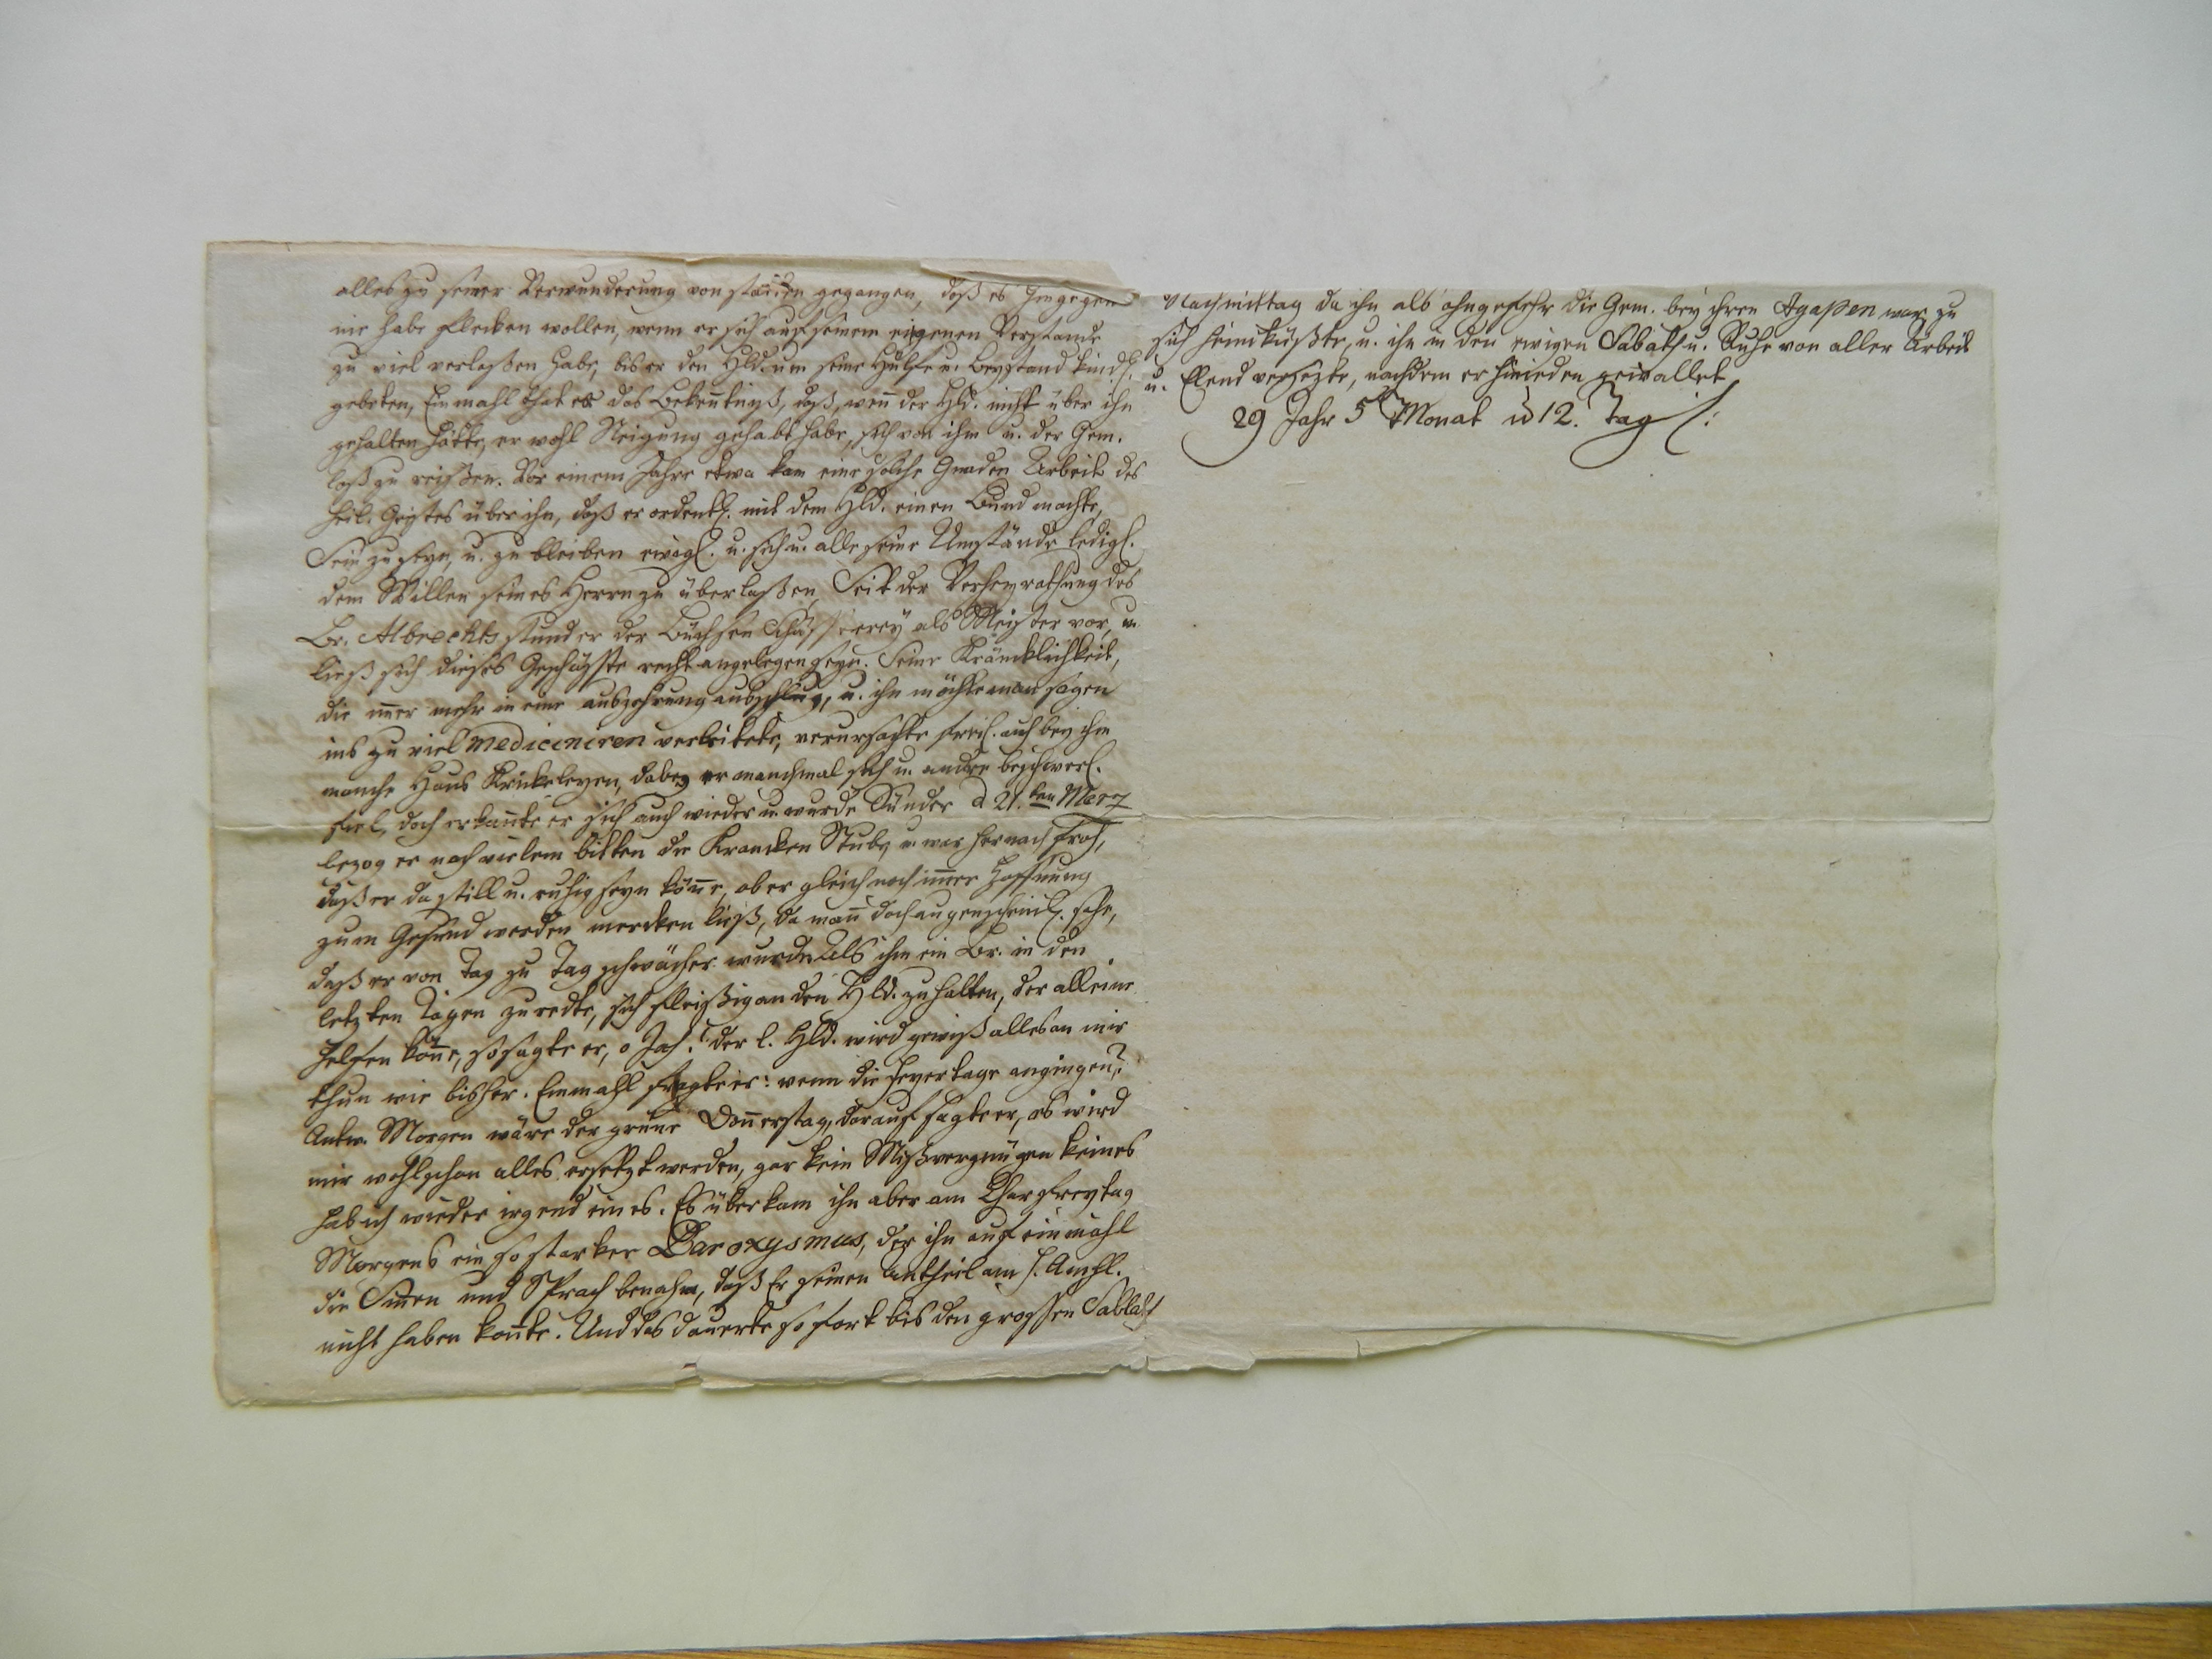 alles zu seiner Verwunderung von statten gegangen, daß es hingegen
nie habe flecken wollen, wenn er sich auf seinem eigenen Verstande
zu viel verlaßen habe, bis er den Hld. um seine Hülfe u. Beystand kindl.
gebeten, Einmahl that er das Bekentniß, daß, wen der Hld. nicht über ihn
gehalten hätte, er wohl Neigung gehabt habe, sich von ihm u. der Gem.
loß zu reißen. Vor einem Jahre etwa kam eine solche Gnaden Arbeit des
heil. Geistes über ihn, daß er ordentl. mit dem Hld. einen Bund machte,
Sein zu seyn, u. zu bleiben ewigl. u. sich u. alle seine Umstände ledigl.
dem Willen seines Herrn zu überlaßen, Seit der Verheyrathung des
Br. Albrechts stund er der Büchsen Schäfterey als Meister vor, u.
ließ sich dieses Geschäfte recht angelegen seyn. Seine Kräncklichkeit,
die imer mehr in eine auszehrung ausschlug, u. ihn möchte man sagen
ins zu viel mediciniren verleitete, verursachte freil. auch bey ihm
manche Haus Krickeleyen, dabey er manchmal sich u. andre beschwerl.
fiel, doch erkante er sich auch wieder u. wurde Sünder d 21.ten Merz
bezog er nach vielem bitten die Krancken Stube, u. war hernach froh,
daß er da still u. ruhig seyn köne, ob er gleich noch imer Hoffnung
zum Gesund werden mercken ließ, da man doch augenscheinl. sahe,
daß er von Tag zu Tag schwächer wurde. Als ihm ein Br. in den
letzten Tagen zuredte, sich fleißig an den Hld. zu halten, der alleine
helfen köne, so sagte er, o Ja! der l. Hld. wird gewiß alles an mir
thun wie bisher. Einmahl fragte er: wenn die Feyertage angingen?
Antw. Morgen wäre der grüne Donerstag, darauf sagte er, es wird
mir wohl schon alles ersetzt werden, gar kein Mißvergnügen keines
hab ich wieder irgend eines. Es überkam ihn aber am Charfreytag
Morgens ein so starker Paroxysmus, der ihn auf einmahl
die Sinen und Sprach benahm, daß Er seinen Antheil am h. Amhl.
nicht haben konte. Und das dauerte so fort bis den grossen Sabbath
Nachmittag da ihn als ohngefehr die Gem. bey ihren Agapen war, zu
sich heimküßte, u. ihn in den ewigen Sabath u. Ruhe von aller Arbeit
u. Elend versezte, nachdem er hinieden gewallet
29 Jahr 5 Monat u 12. Tag